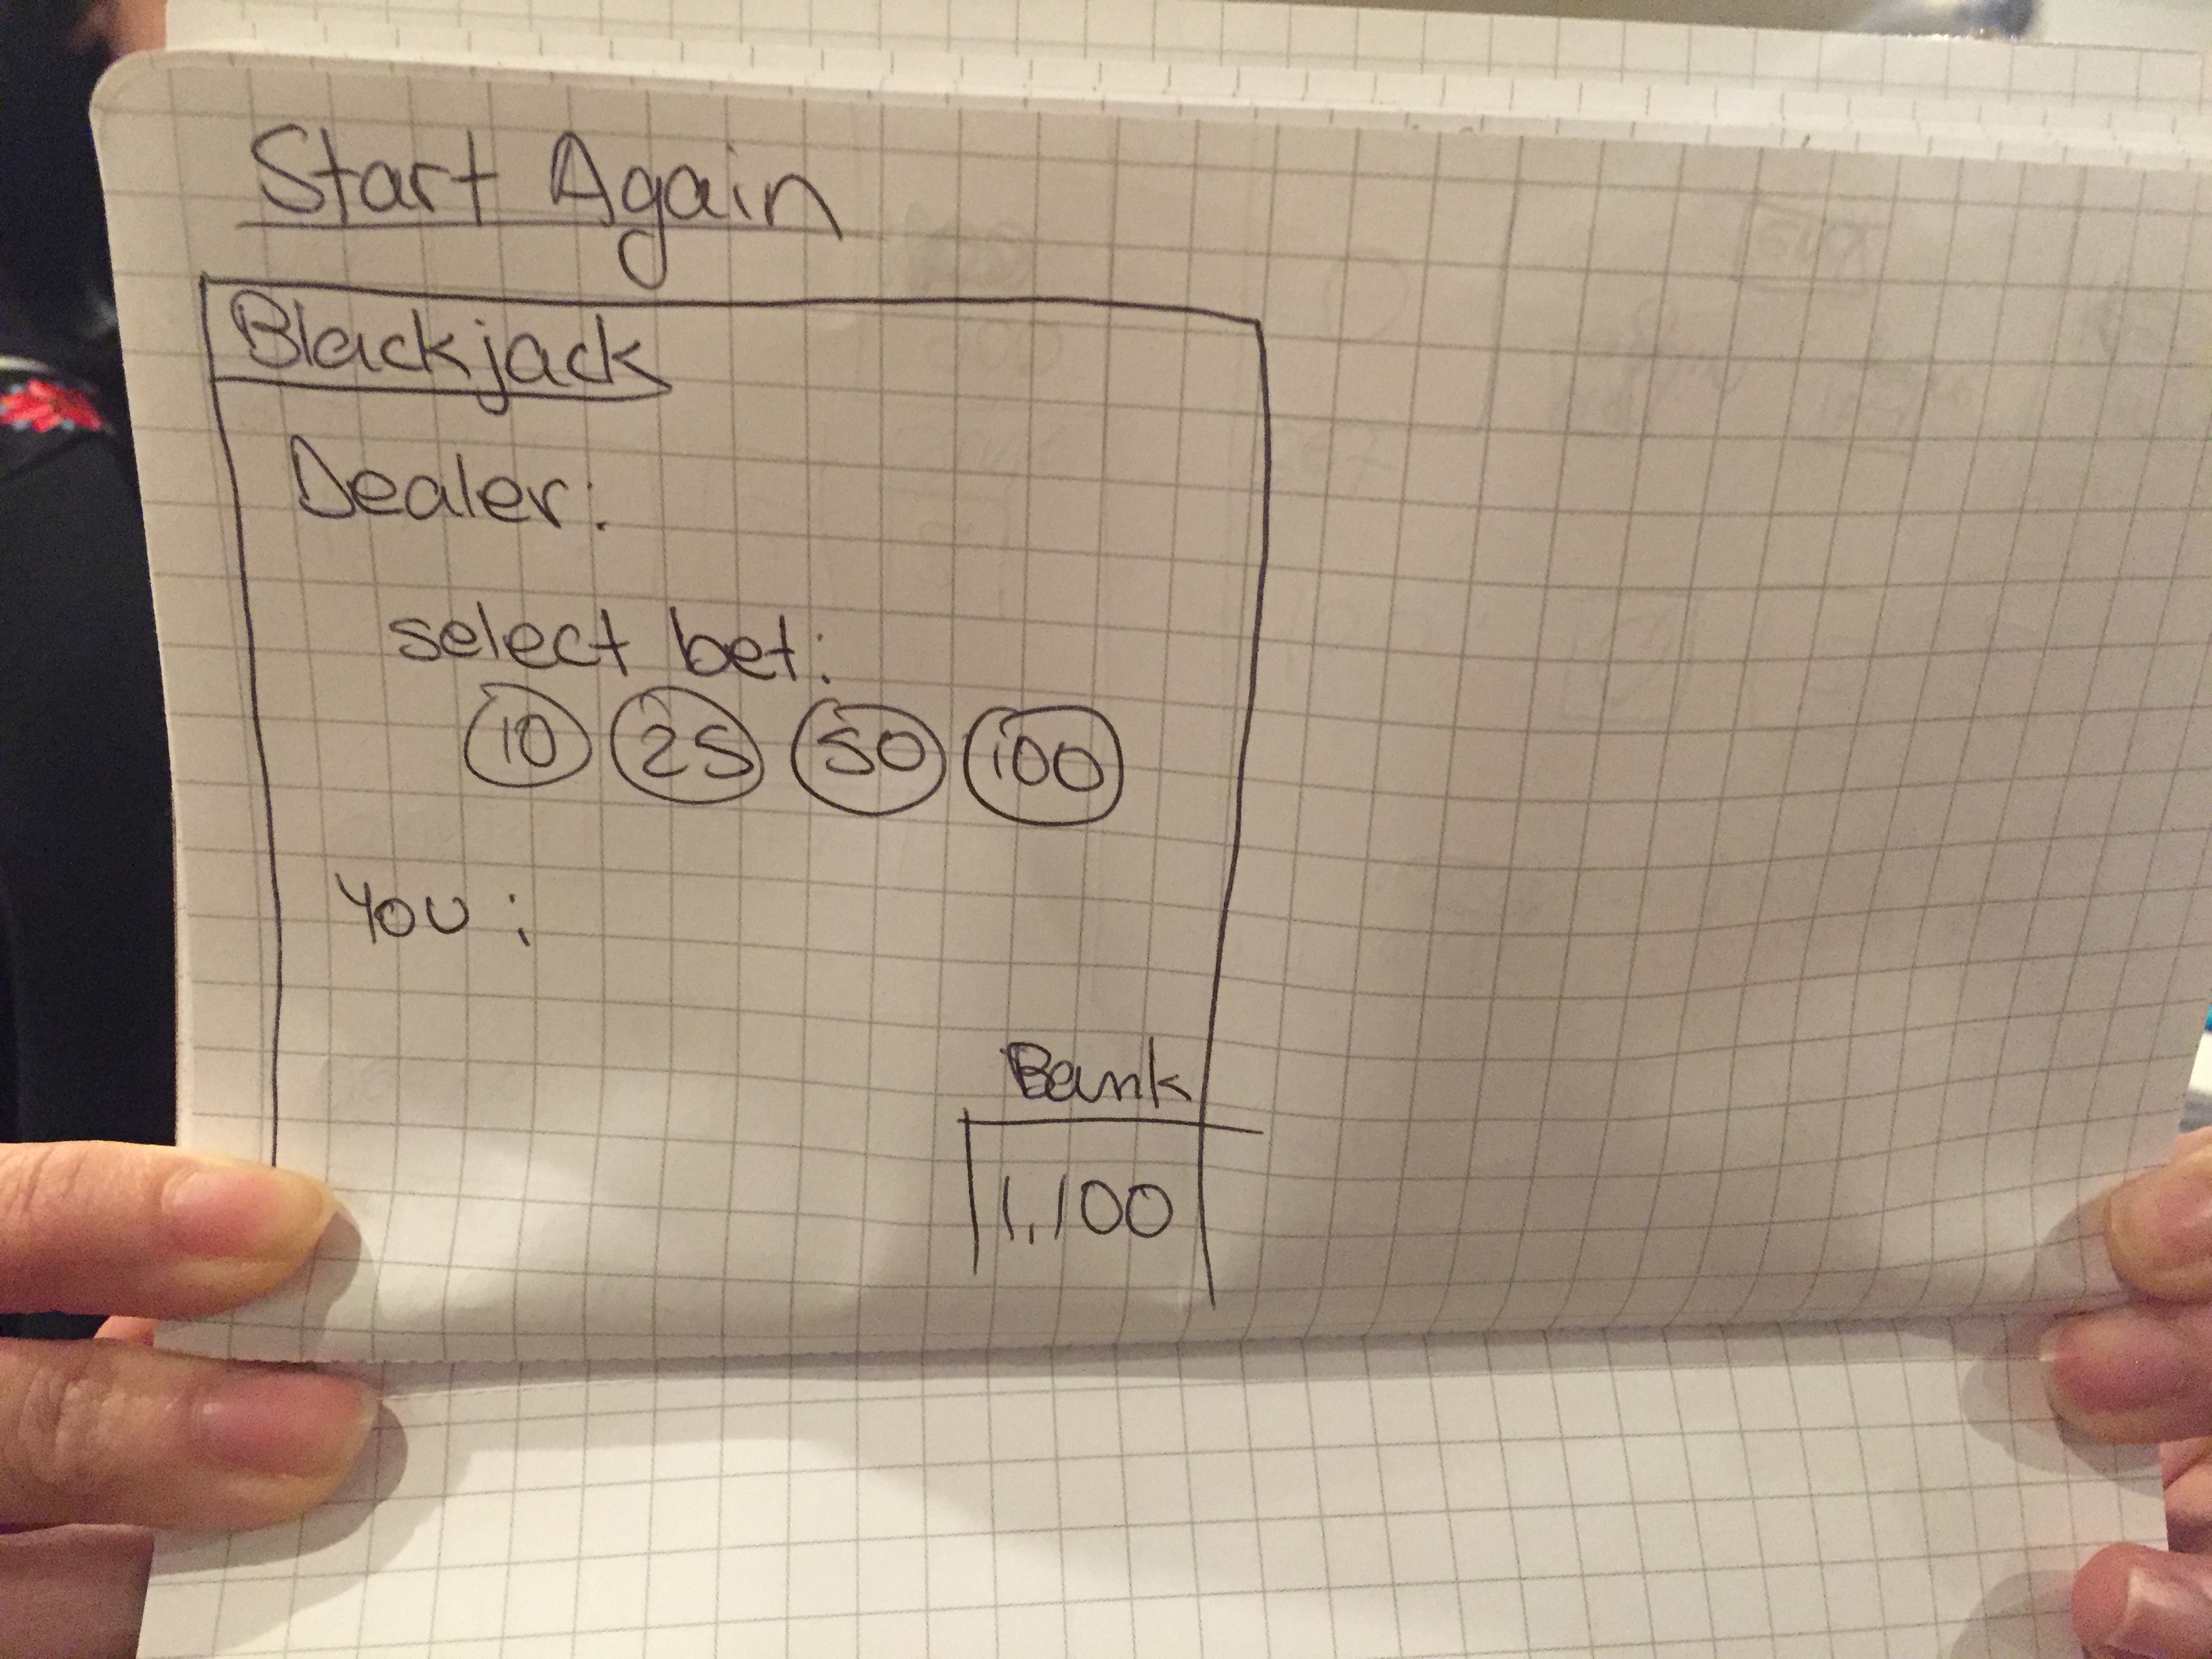 Start Again
Blackjack
Dealer:
select bet:
10 25 50 100
You:
Bank
1,100